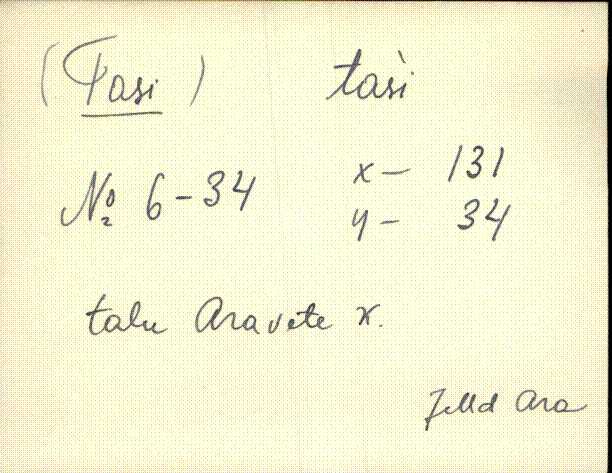 (Tasi) tasì
№ 6-34 x- 131
y- 34
talu Aravete k.
JMd Ara